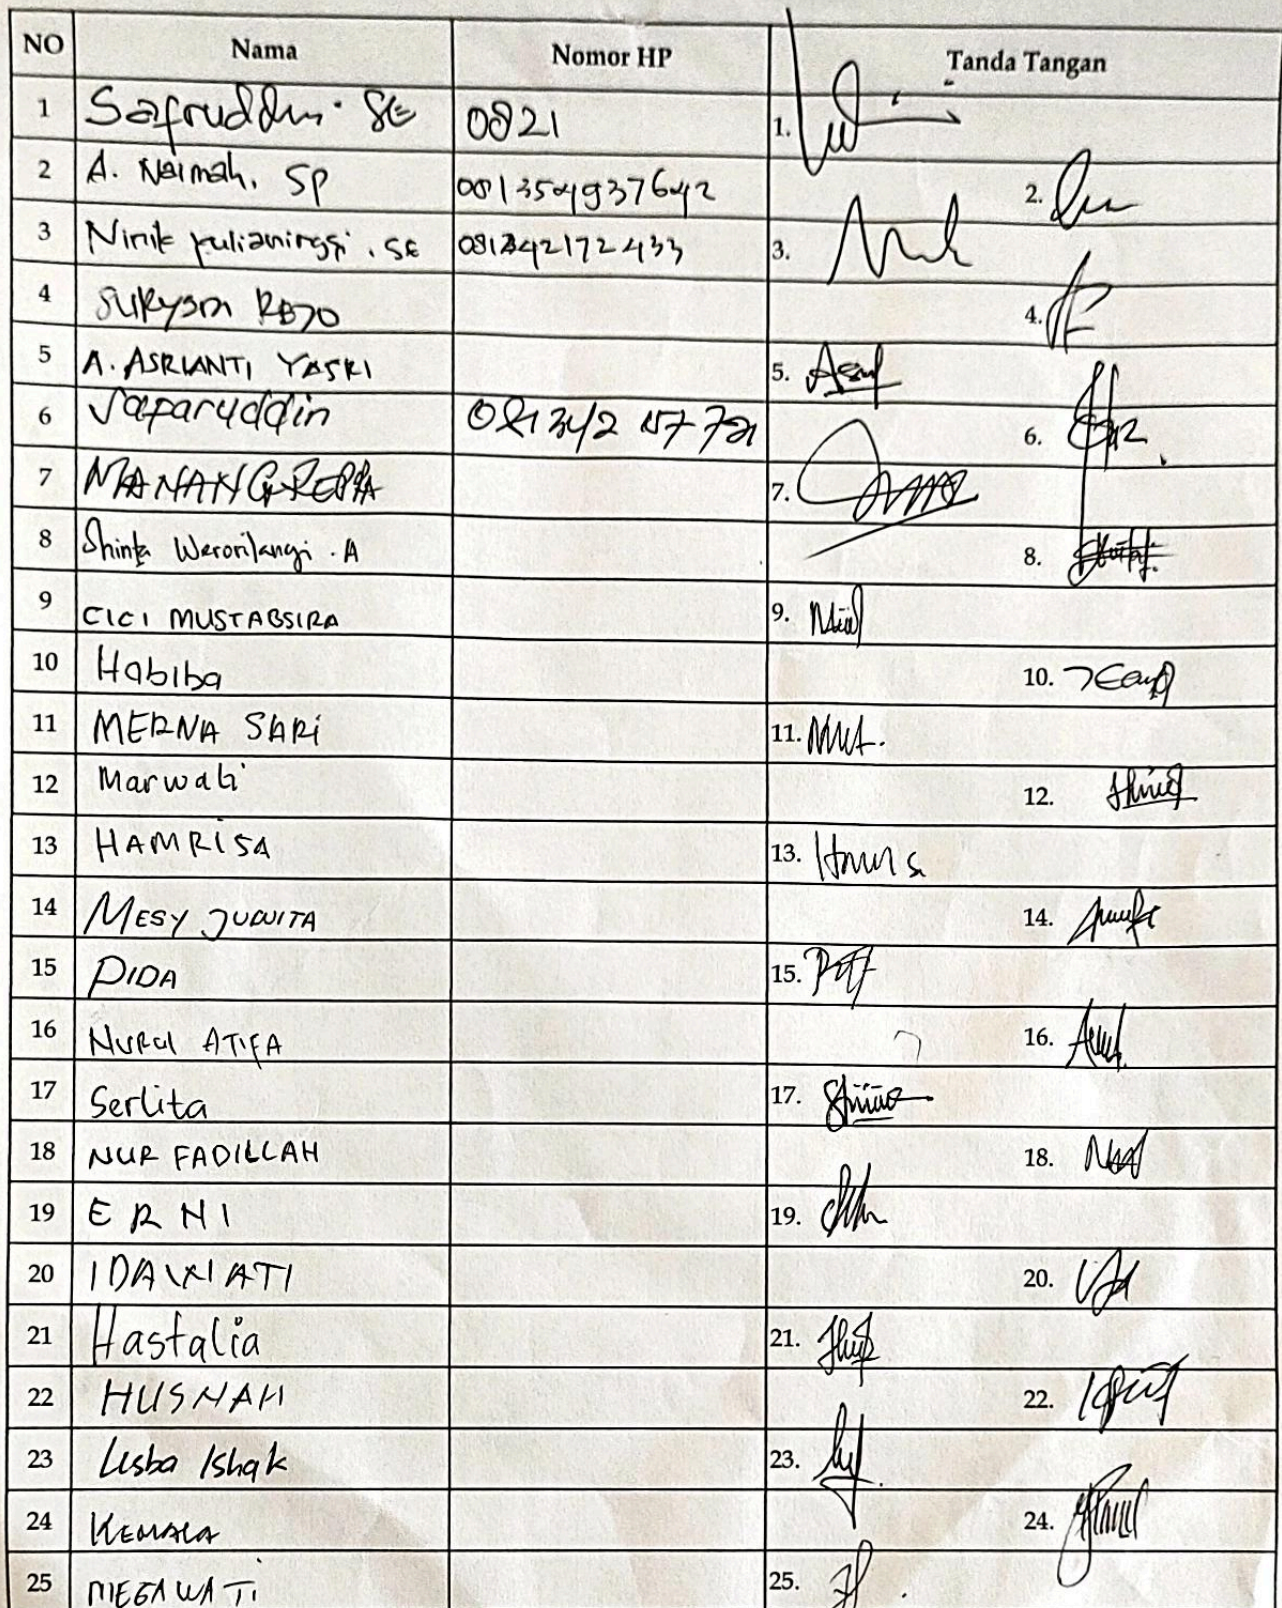 NO Nama Nomor HP Tanda Tangan
1 Safruddin. SE 0821 1.
2 A. Naimah, SP 081354937642 2.
3 Ninik Yulianingsi. SE 081342172433 3.
4 4.
5 A. ASRIANTI YASRI 5.
6 Saparuddin 6.
7 MANANGREPPA 7.
8 Shinta Werorilangi. A 8.
9 CICI MUSTABSIRA 9.
10 Habiba 10.
11 MERNA SARI 11.
12 Marwati 12.
13 HAMRISA 13.
14 MESY JUWITA 14.
15 DIDA 15.
16 NURUL ATIFA 16.
17 Serlita 17.
18 NUR FADILLAH 18.
19 ERNI 19.
20 IDAWATI 20.
21 Hastalia 21.
22 HUSNAH 22.
23 Ishak 23.
24 KEMALA 24.
25 MEGAWATI 25.